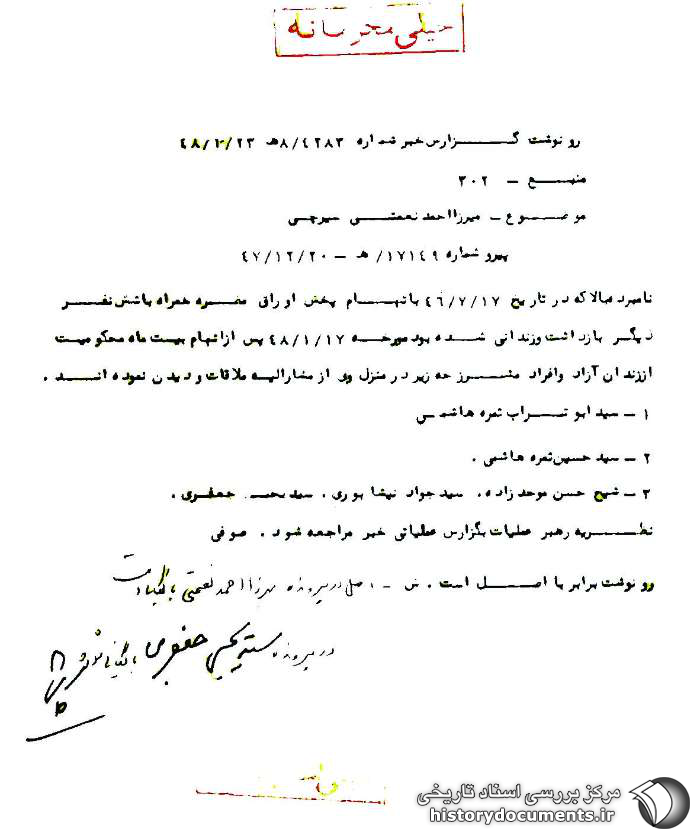 خیلی محرمانه
رونوشت گزارش خبر شماره ۸/٤۲۸۳ه‍ ٤۸/۲/۲۳
منبع – ۳۰۲
موضوع – میرزااحمد نعمتی سیرچی
پیرو شماره ۱۷۱٤۹/ ه‍ – ٤۷/۱۲/۲۰
نامبرده بالا که در تاریخ ٤٦/۷/۱۷ باتهام پخش اوراق مضره همراه باشش نفر
دیگر بازداشت وزندانی شده بود مورخه ٤۸/۱/۱۷ پس ازاتمام بیست ماه محکومیت
اززندان آزاد وافراد مشروحه زیر در منزل وی از مشارالیه ملاقات و دیدن نموده اند .
۱ – سید ابوتراب ثمره هاشمی
۲ – سید حسین ثمره هاشمی .
۳ – شیخ حسن موحدزاده، سید جواد نیشابوری، سید یحیی جعفری .
نظریه رهبر عملیات بگزارش عملیاتی خبر مراجعه شود . صوفی
رونوشت برابر با اصل است . ش – اصل در پرونده میرزا احمد نعمتی بایگانی است
در پرونده سید یحیی جعفری بایگانی شود
مرکز بررسی اسناد تاریخی
historydocuments.ir